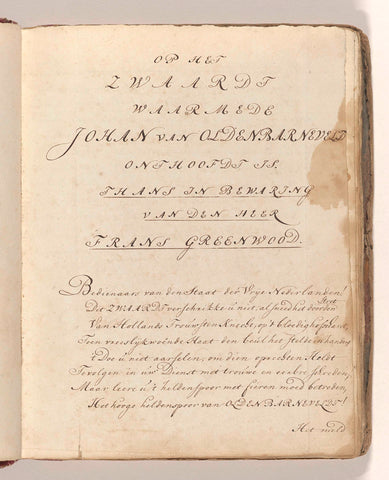 OP HET
ZWAARDT
WAARMEDE
JOHAN VAN OLDENBARNEVELD
ONTHOOFDT IS.
THANS IN BEWARING
VAN DEN HEER
FRANS GREENWOOD.
Bedienaars van den Staat der Vrye Nederlanden!
Dit ZWAARDT verschrikke u niet, al sneed het door den
Strot
Van Hollands Trouwsten Knecht, op 't bloedig
Toen de Staat den beul het stelde in handen
't Doe u niet aarselen, om dien oprechten Holdt
Te volgen in uw' Dienst met trouwe en
Maar leere u 't heldenspoor met fieren moed betreden,
Het hooge heldenspoor van OLDENBARNEVELDT!
Het